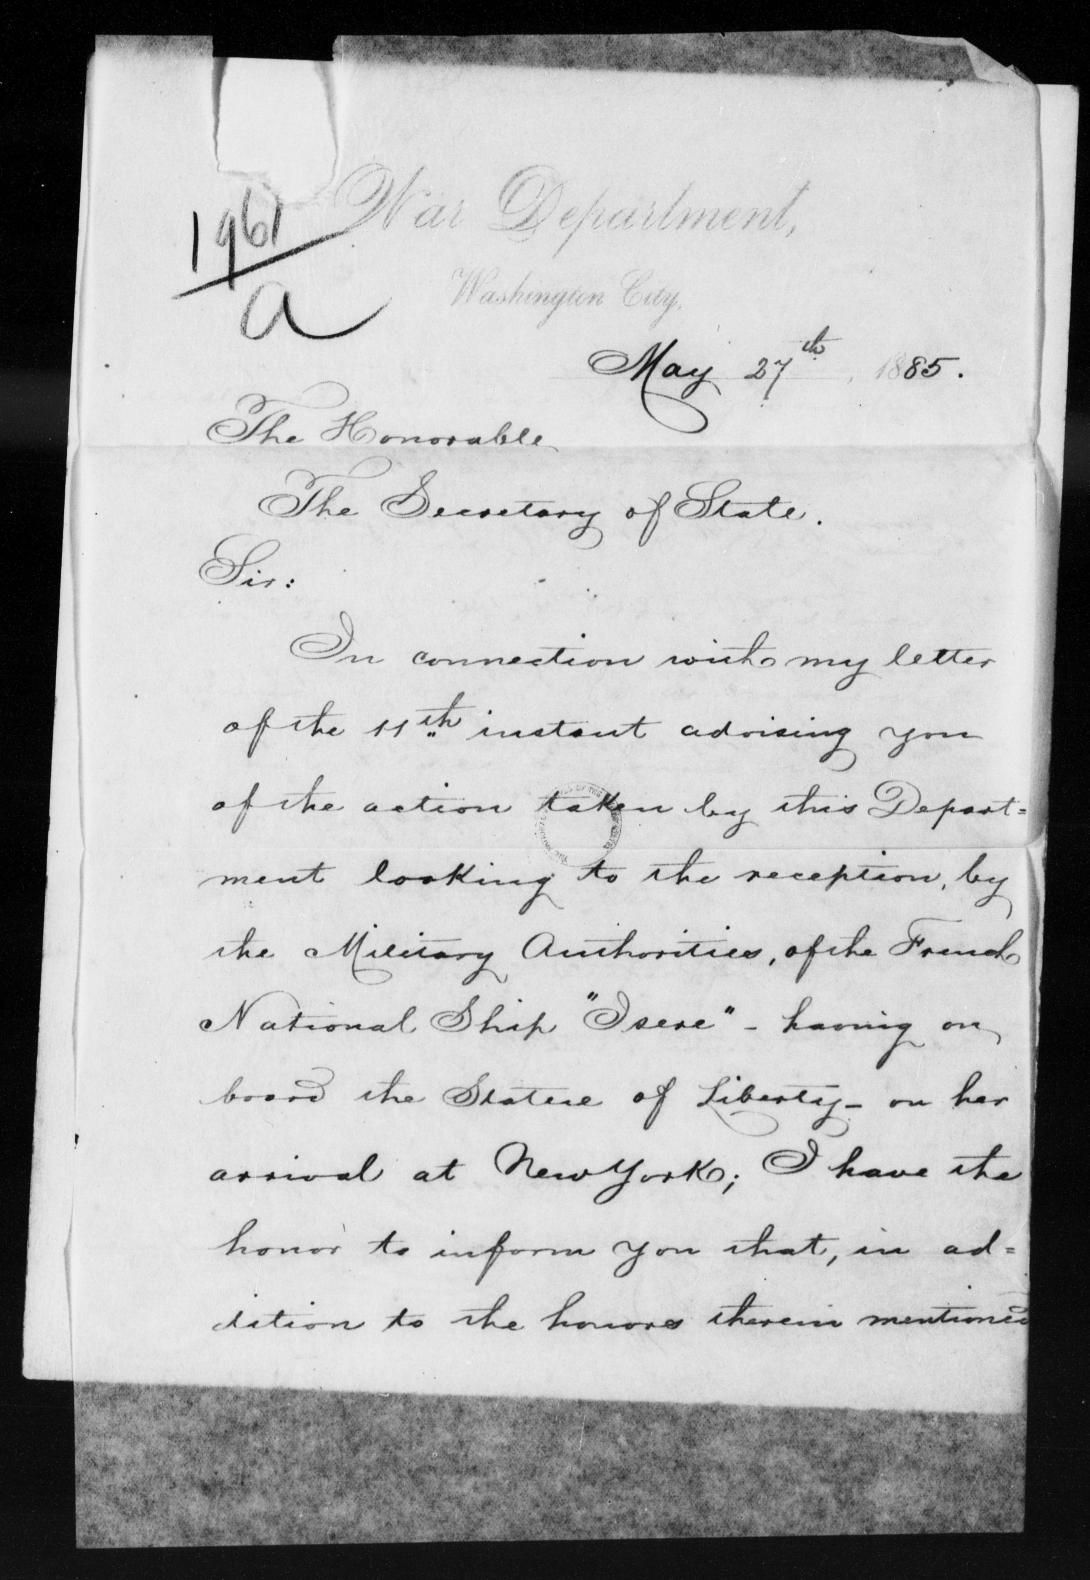 1961
a
War Department,
Washington City,
May 27th, 1885.
The Honorable
The Secretary of State.
Sir:
In connection with my letter
of the 11th instant advising you
of the action taken by this Depart=
ment looking to the reception, by
the Military Authorities, of the French
National Ship "Isere" - having on
board the Statue of Liberty - on her
arrival at New York; I have the
honor to inform you that, in ad=
dition to the honors therein mentioned